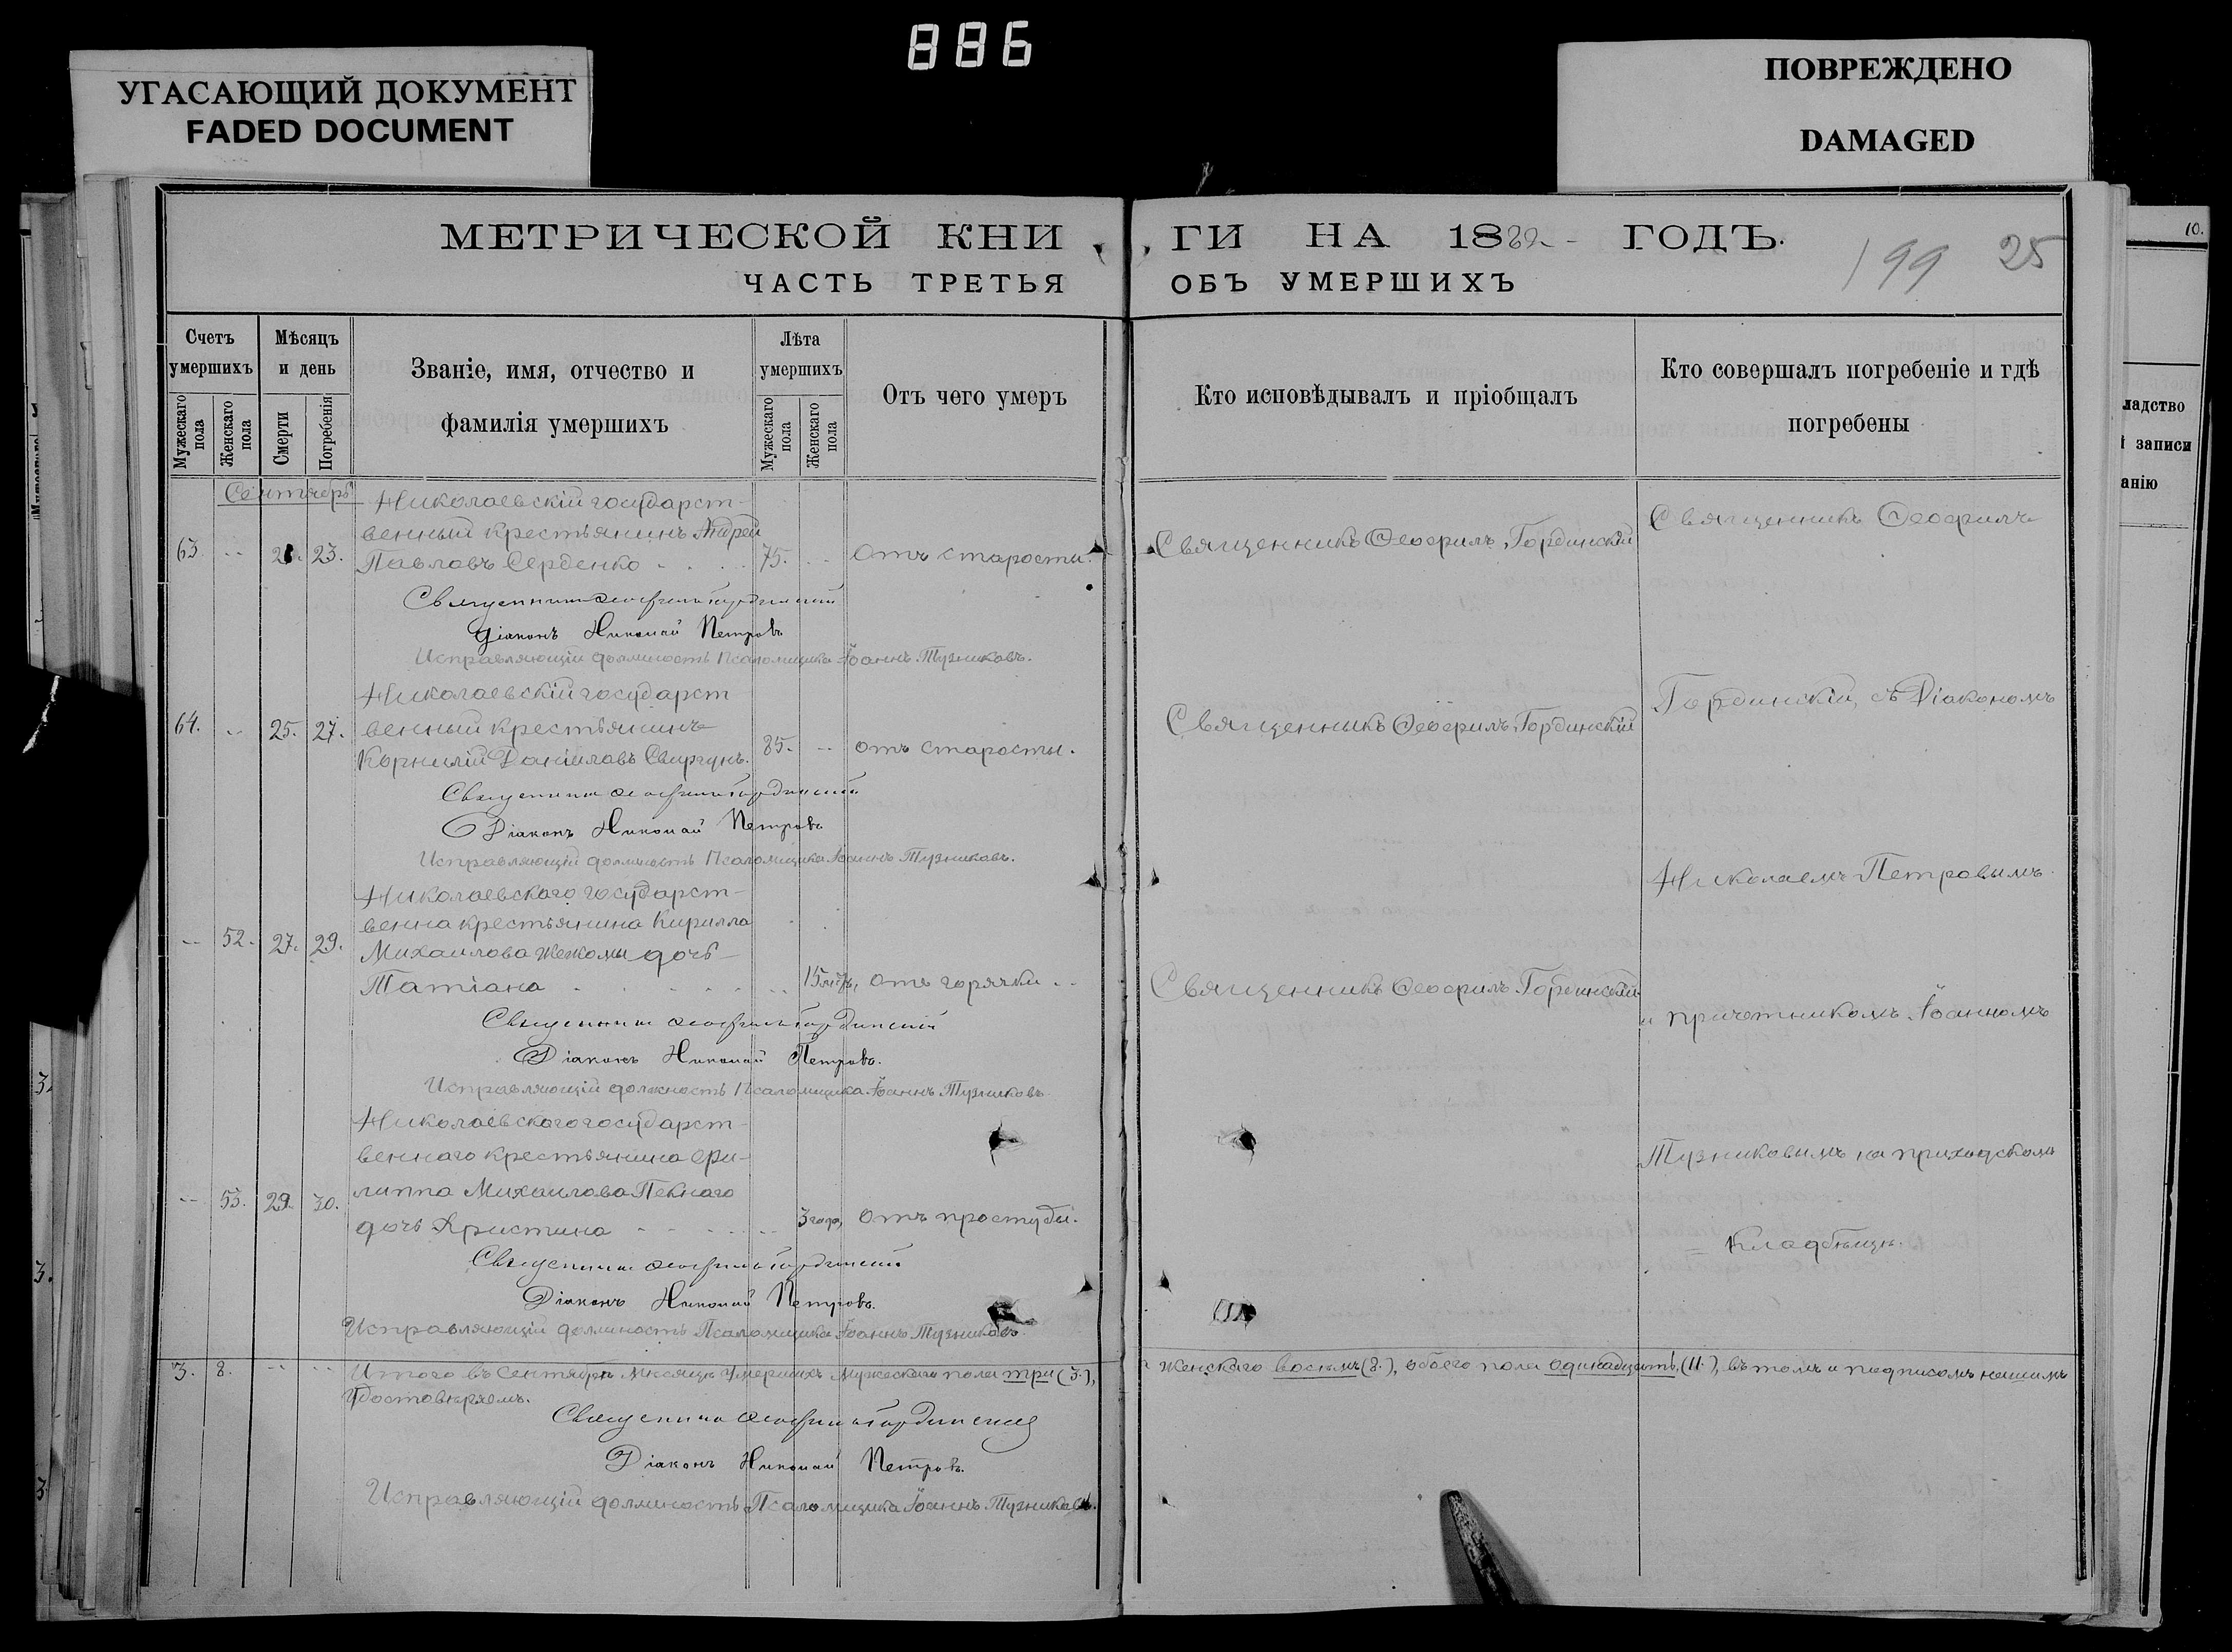 886
УГАСАЮЩИЙ ДОКУМЕНТ
FADED DOCUMENT
ПОВРЕЖДЕНО
DAMAGED
МЕТРИЧЕСКОЙ КНИ
ГИ НА 1882 ГОДЪ.
199 25
10.
ЧАСТЬ ТРЕТЬЯ
ОБЪ УМЕРШИХЪ
Счетъ умершихъ
Мужескаго пола
Женскаго пола
Мѣсяцъ и день
Смерти
Погребенія
Званіе, имя, отчество и
фамилія умершихъ
Лѣта умершихъ
Мужескаго пола
Женскаго пола
Отъ чего умеръ
Кто исповѣдывалъ и пріобщалъ
Кто совершалъ погребеніе и гдѣ
погребены
ладство
записи
анію
Сентябрь
Николаевскій государст-
венный крестьянинъ Андрей
63. -- 23. Павловъ Серденко 75. -- отъ старости.
Священникъ Ѳеофилъ Гординскій
Священникъ Ѳеофилъ
Священникъ Ѳеофилъ Гординскій
Діаконъ Николай Петровъ
Исправляющій должность Псаломщика Іоаннъ Тузниковъ.
Николаевскій государст
64. -- 25. 27. венный крестьянинъ
Корнилій Даніиловъ 85. -- отъ старости.
Священникъ Ѳеофилъ Гординскій
Гординскій, съ Діакономъ
Священникъ Ѳеофилъ Гординскій
Діаконъ Николай Петровъ
Исправляющій должность Псаломщика Іоаннъ Тузниковъ.
Николаевскаго государст-
венна крестьянина Кирилла
-- 52. 27. 29. Михаилова дочь
Татіана 15 лѣтъ, отъ горячки
Священникъ Ѳеофилъ Гординскій
Николаемъ Петровымъ
Священникъ Ѳеофилъ Гординскій
Діаконъ Николай Петровъ.
Исправляющій должность Псаломщика Іоаннъ Тузниковъ
и причетникомъ Іоанномъ
Николаевскаго государст-
веннаго крестьянина Фи-
-- 53. 29. 30. липпа Михаилова Пекнаго
дочь Христина 3 года, отъ простуды.
Тузниковымъ на приходскомъ
кладбищѣ.
Священникъ Ѳеофилъ Гординскій
Діаконъ Николай Петровъ.
Исправляющій должность Псаломщика Іоаннъ Тузниковъ.
3. 8. -- -- Итого въ Сентябрѣ мѣсяцѣ умершихъ мужескаго пола три (3.),
женскаго восемь (8.), обоего пола одинадцать, (11.), въ томъ и подписомъ нашимъ
Удостовѣряемъ.
Священникъ Ѳеофилъ Гординскій
Діаконъ Николай Петровъ.
Исправляющій должность Псаломщика Іоаннъ Тузниковъ.